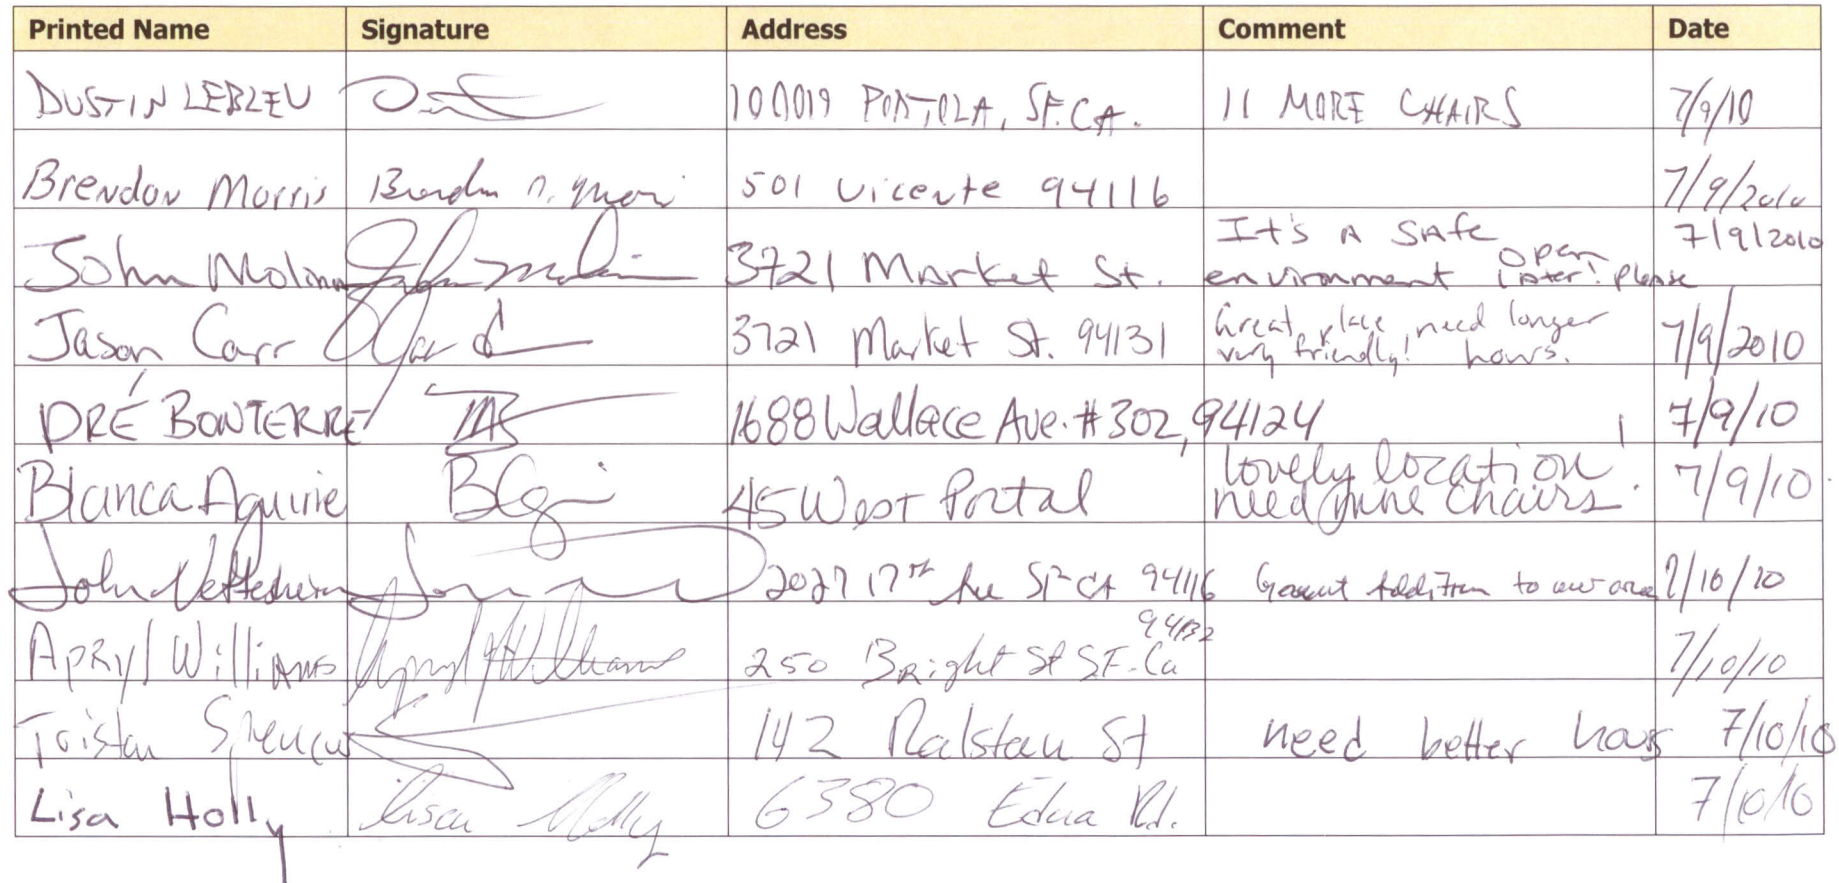 Printed Name Signature Address Comment Date
DUSTIN LEBLEU PORTOLA, SF. CA. 11 MORE CHAIRS 7/9/10
Brendon Morris 501 Vicente 94116 7/9/2010
John Molina 3721 Market St. It's A SAFE environment open later! please 7/9/2010
Jason Carr 3721 Market St. 94131 Great place, need longer 7/9/2010
very friendly! hours.
DRÉ BONTERRE 1688 Wallace Ave. #302, 94124 7/9/10
Blanca Aguirre 45 West Portal lovely location! 7/9/10
need more chairs.
John 2027 17th Ave SF CA 94116 Addition to our area 7/10/10
Apryl Williams Apryl Williams 250 Bright St SF. Ca 94132 7/10/10
Tristan Spencer 142 Ralston St need better hours 7/10/10
Lisa Holly Lisa Holly 6380 Edna Rd. 7/10/10